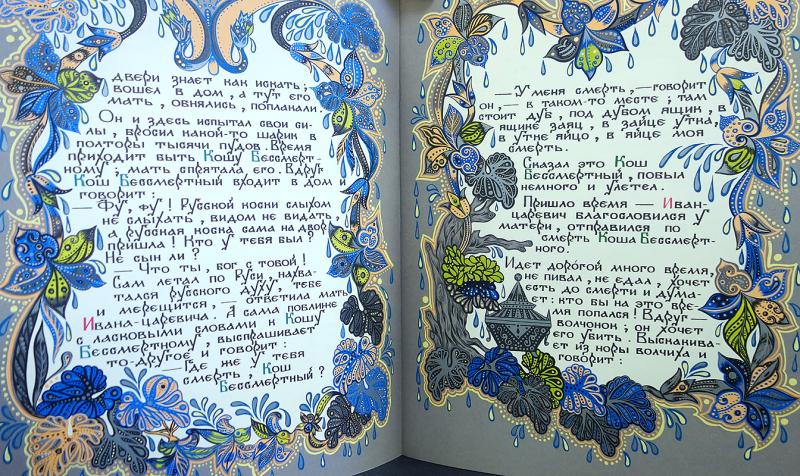 двери знает как искать;
вошел в дом, а тут его
мать, обнялись, поплакали.
Он и здесь испытал свои си-
лы, бросил какой-то шарик в
полторы тысячи пудов. Время
приходит быть Кошу Бессмерт-
ному; мать спрятала его. Вдруг
Кош Бессмертный входит в дом и
говорит:
— Фу, фу! Русской коски слыхом
не слыхать, видом не видать,
а русская коска сама на двор
пришла! Кто у тебя был?
Не сын ли?
— Что ты, бог с тобой!
Сам летал по Руси, нахва-
тался русского духу, тебе
и мерещится, — ответила мать
Ивана-царевича. А сама поближе
с ласковыми словами к Кошу
Бессмертному, выспрашивает
то-другое и говорит:
— Где же у тебя
смерть, Кош
Бессмертный?
— У меня смерть, — говорит
он, — в таком-то месте; там
стоит дуб, под дубом ящик, в
ящике заяц, в зайце утка,
в утке яйцо, в яйце моя
смерть.
Сказал это Кош
Бессмертный, побыл
немного и улетел.
Пришло время — Иван-
царевич благословился у
матери, отправился по
смерть Коша Бессмерт-
ного.
Идет дорогой много время,
не пивал, не едал, хочет
есть до смерти и дума-
ет: кто бы на это вре-
мя попался! Вдруг —
волчонок; он хочет
его убить. Выскакива-
ет из норы волчиха и
говорит: